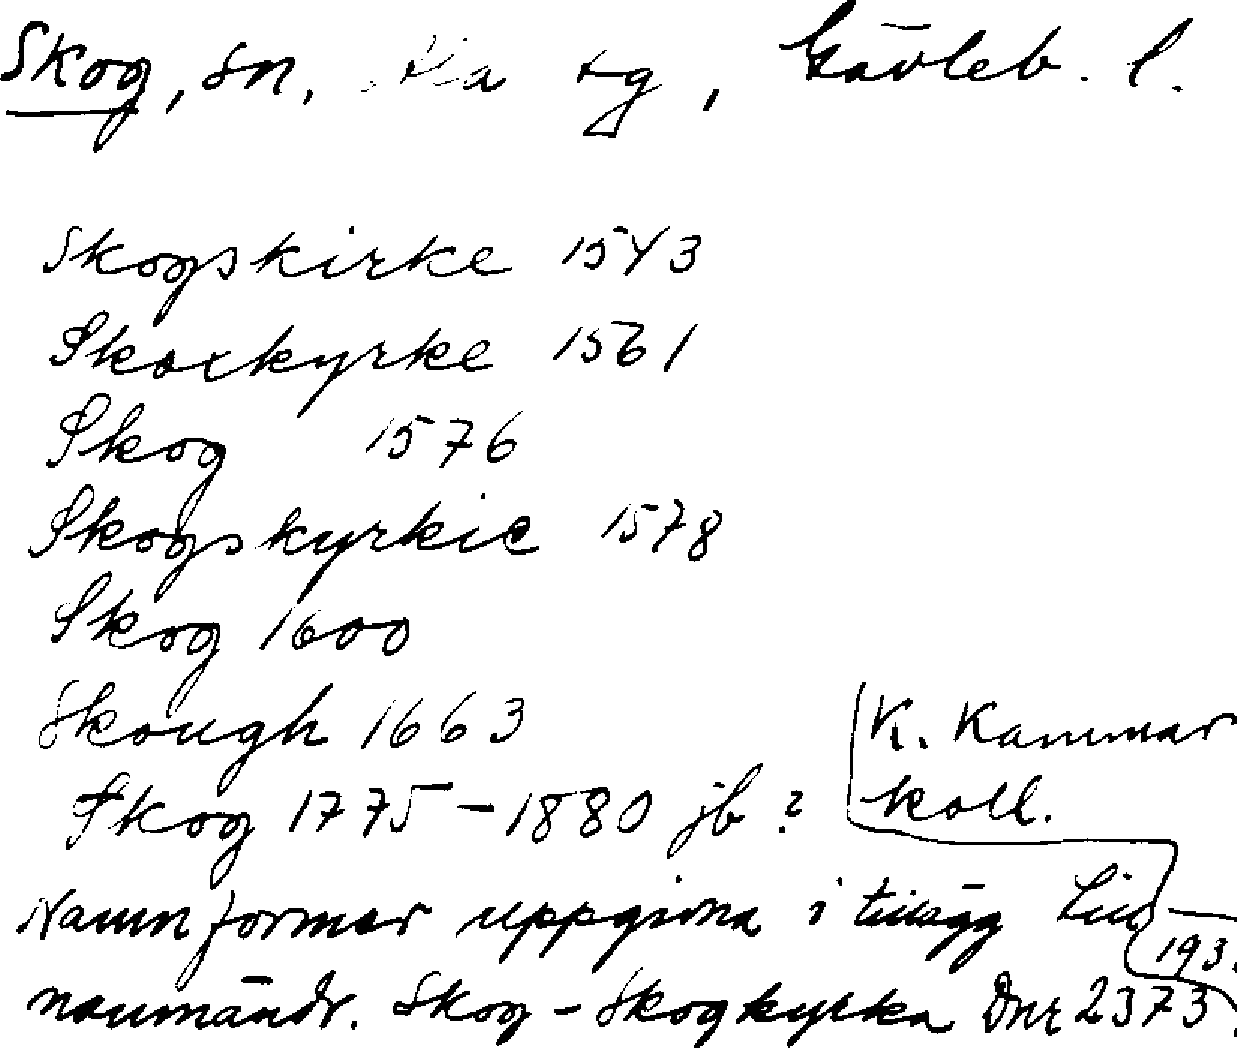 Skog, sn, Ala tg, Gävleb. l.
Skogskirke 1543
Skoxkyrke 1561
Skog 1576
Skogskyrkie 1578
Skog 1600
Skough 1663
K. Kammar
Skog 1775-1880 jb?
koll.
Namnformer uppgivna i tillägg till
193
namnändr. Skog - Skogkyrka Dnr 2373